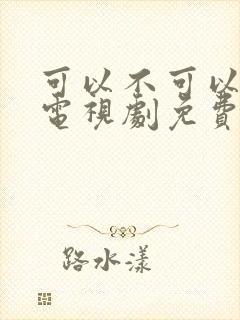 可以不可以
電視劇免費
路水漾